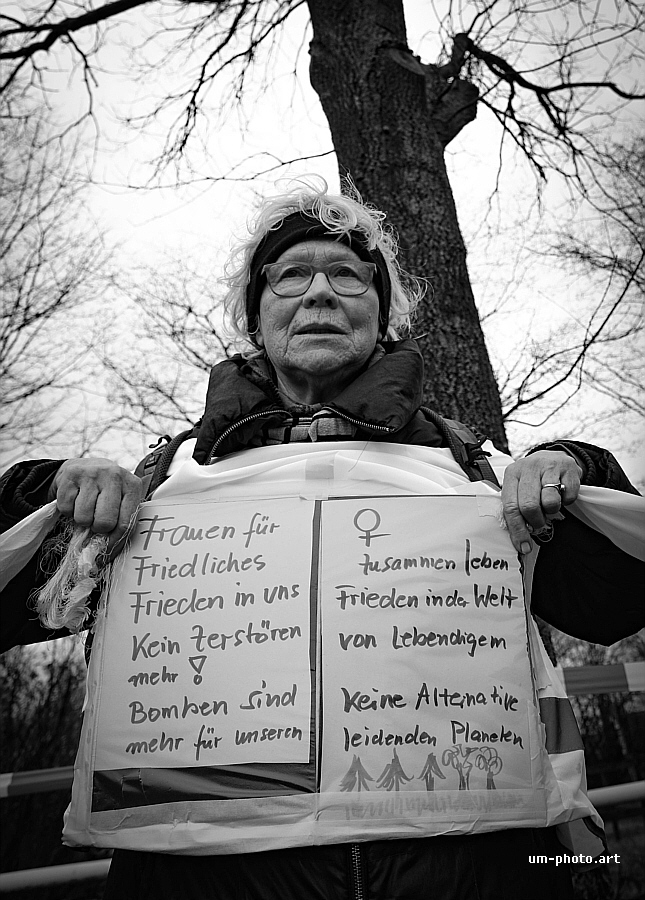 Frauen für
Friedliches
Frieden in uns
Kein Zerstören
mehr !
Bomben sind
mehr für unseren
♀
zusammen leben
Frieden in der Welt
von Lebendigem
Keine Alternative
leidenden Planeten
um-photo.art